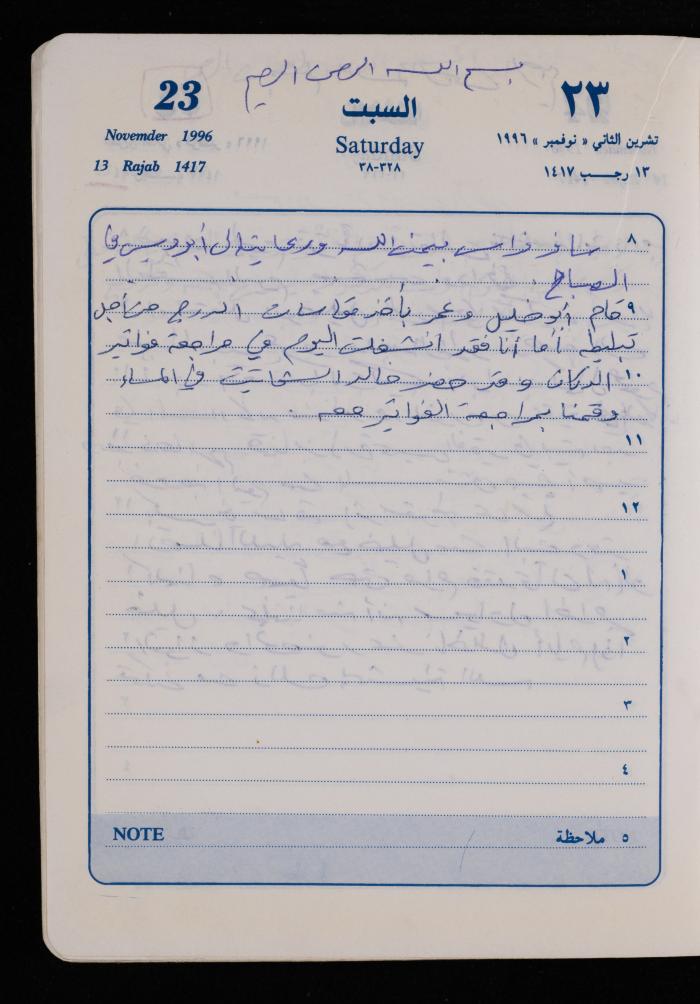 بسم الله الرحمن الرحيم
23
السبت
٢٣
Novemder 1996
Saturday
تشرين الثاني « نوفمبر » ١٩٩٦
13 Rajab 1417
٣٨-٣٢٨
١٣ رجب ١٤١٧
٨ سافر فراس بيمن الله ورعايته الى أبوديس في
الصباح .
٩ قام أبو خليل وعمر بأخذ قياسات الدرج من أجل
تبليطه أما أنا فقد انشغلت اليوم في مراجعة فواتير
١٠ الدكان وقد حضر خالد في المساء
وقمنا بمراجعة الفواتير معه .
١١
١٢
١
٢
٣
٤
NOTE
٥ ملاحظة